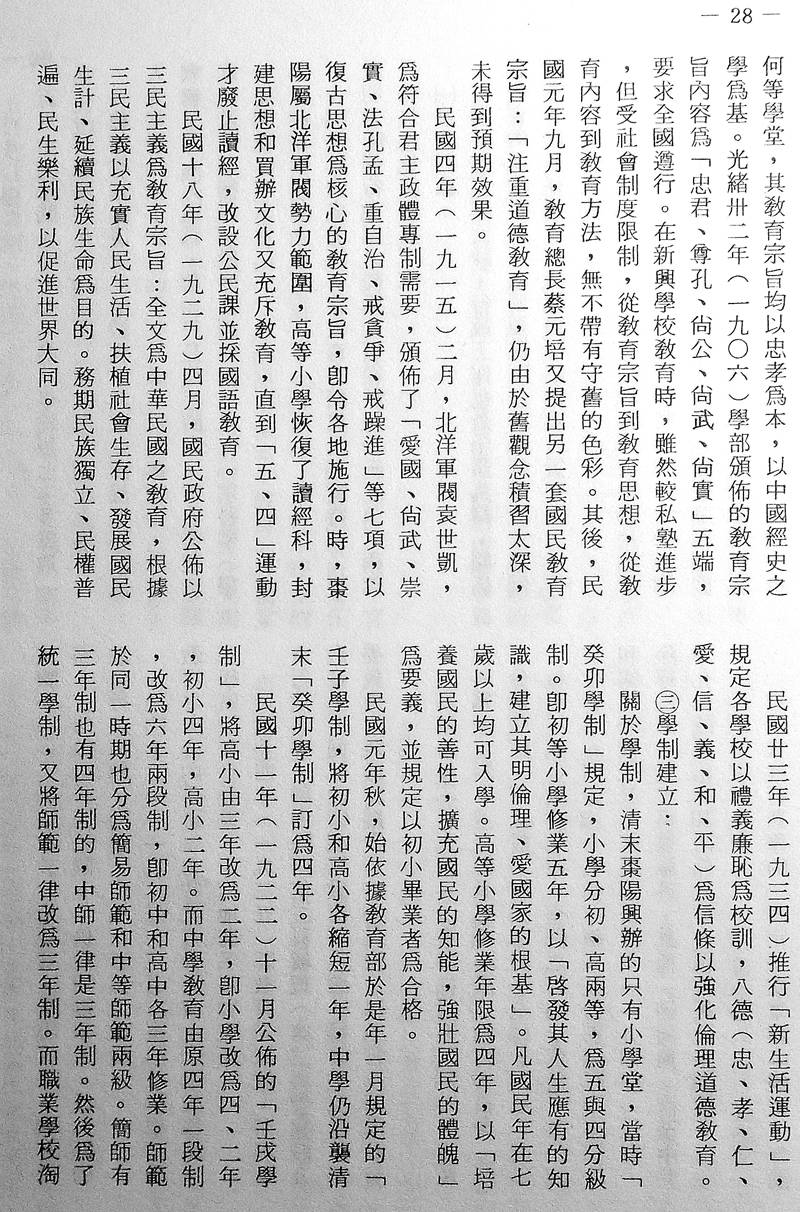 — 28 —
何等學堂，其教育宗旨均以忠孝爲本，以中國經史之
學爲基。光緒卅二年（一九〇六）學部頒佈的教育宗
旨內容爲「忠君、尊孔、尙公、尙武、尙實」五端，
要求全國遵行。在新興學校教育時，雖然較私塾進步
，但受社會制度限制，從教育宗旨到教育思想，從教
育內容到教育方法，無不帶有守舊的色彩。其後，民
國元年九月，教育總長蔡元培又提出另一套國民教育
宗旨：「注重道德教育」，仍由於舊觀念積習太深，
未得到預期效果。
民國四年（一九一五）二月，北洋軍閥袁世凱，
爲符合君主政體專制需要，頒佈了「愛國、尙武、崇
實、法孔孟、重自治、戒貪爭、戒躁進」等七項，以
復古思想爲核心的教育宗旨，卽令各地施行。時，棗
陽屬北洋軍閥勢力範圍，高等小學恢復了讀經科，封
建思想和買辦文化又充斥教育，直到「五、四」運動
才廢止讀經，改設公民課並採國語教育。
民國十八年（一九二九）四月，國民政府公佈以
三民主義爲教育宗旨：全文爲中華民國之教育，根據
三民主義以充實人民生活、扶植社會生存、發展國民
生計、延續民族生命爲目的。務期民族獨立、民權普
遍、民生樂利，以促進世界大同。
民國廿三年（一九三四）推行「新生活運動」，
規定各學校以禮義廉恥爲校訓，八德（忠、孝、仁、
愛、信、義、和、平）爲信條以強化倫理道德教育。
㊂學制建立：
關於學制，清末棗陽興辦的只有小學堂，當時「
癸卯學制」規定，小學分初、高兩等，爲五與四分級
制。卽初等小學修業五年，以「啓發其人生應有的知
識，建立其明倫理、愛國家的根基」。凡國民年在七
歲以上均可入學。高等小學修業年限爲四年，以「培
養國民的善性，擴充國民的知能，強壯國民的體魄」
爲要義，並規定以初小畢業者爲合格。
民國元年秋，始依據教育部於是年一月規定的「
壬子學制，將初小和高小各縮短一年，中學仍沿襲清
末「癸卯學制」訂爲四年。
民國十一年（一九二二）十一月公佈的「壬戌學
制」，將高小由三年改爲二年，卽小學改爲四、二年
，初小四年，高小二年。而中學教育由原四年一段制
，改爲六年兩段制，卽初中和高中各三年修業。師範
於同一時期也分爲簡易師範和中等師範兩級。簡師有
三年制也有四年制的，中師一律是三年制。然後爲了
統一學制，又將師範一律改爲三年制。而職業學校淘